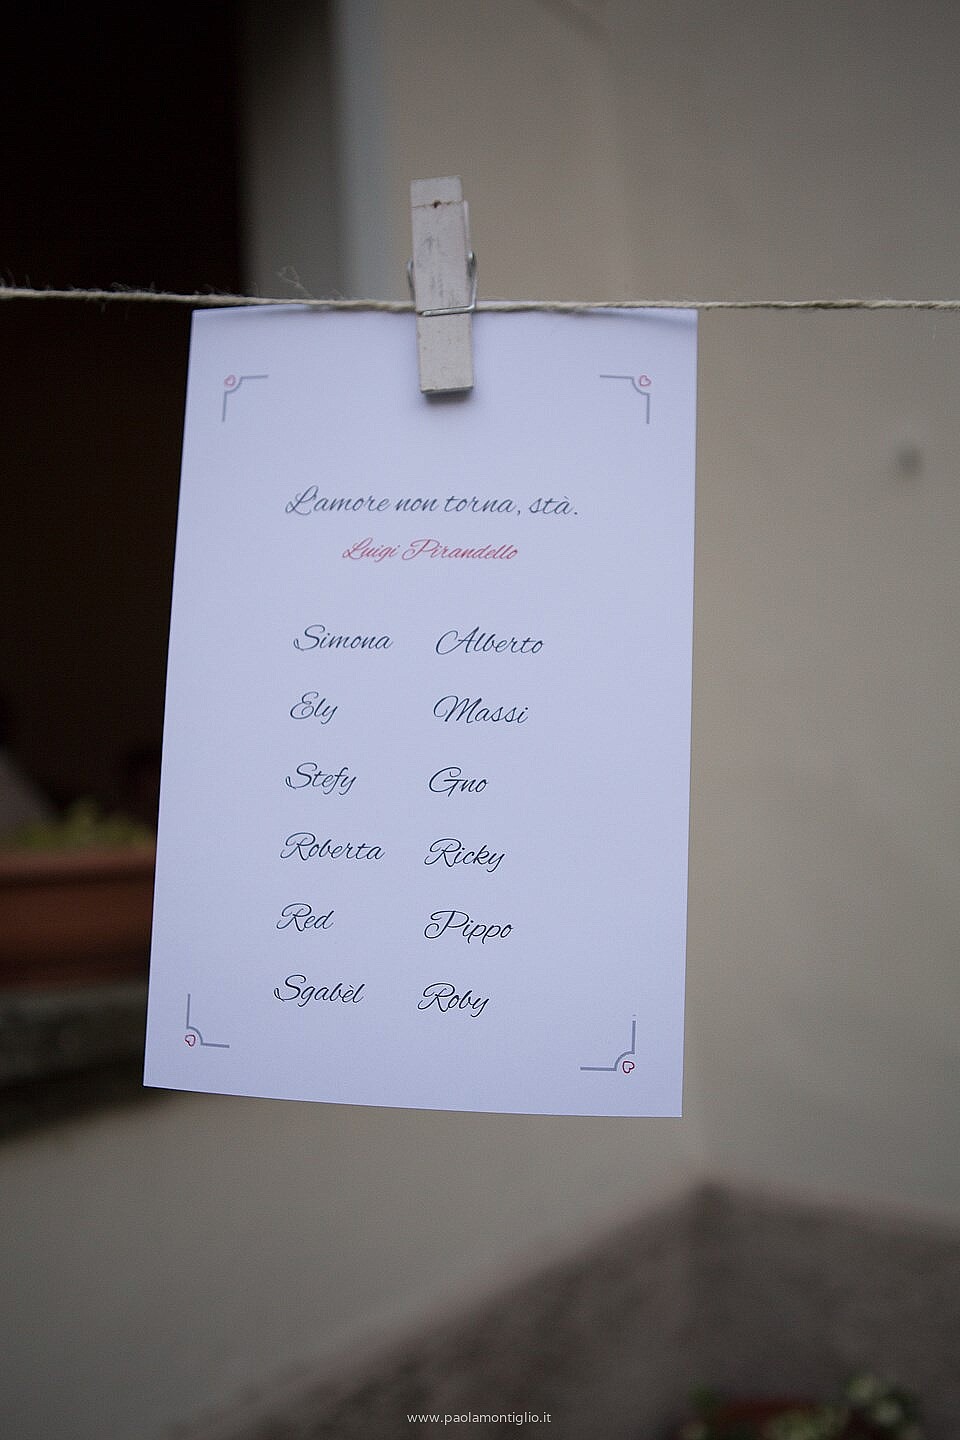 L'amore non torna, stà.
Luigi Pirandello
Simona Alberto
Ely Massi
Stefy Gno
Roberta Ricky
Red Pippo
Sgabèl Roby
www.paolamontiglio.it